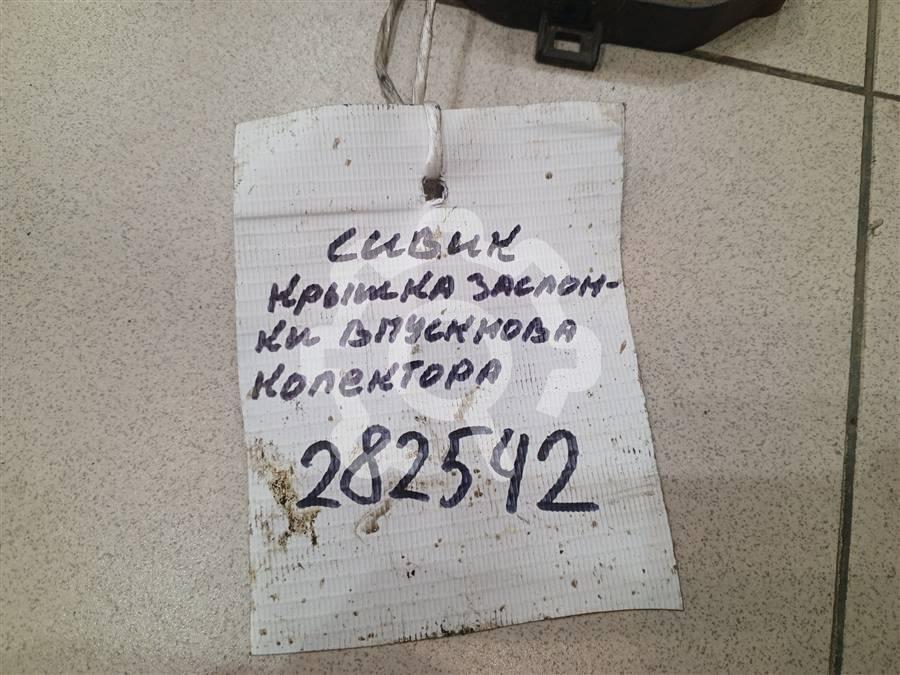 СИВИК
КРЫШКА ЗАСЛОН-
КИ ВПУСКНОВА
КОЛЕКТОРА
282542